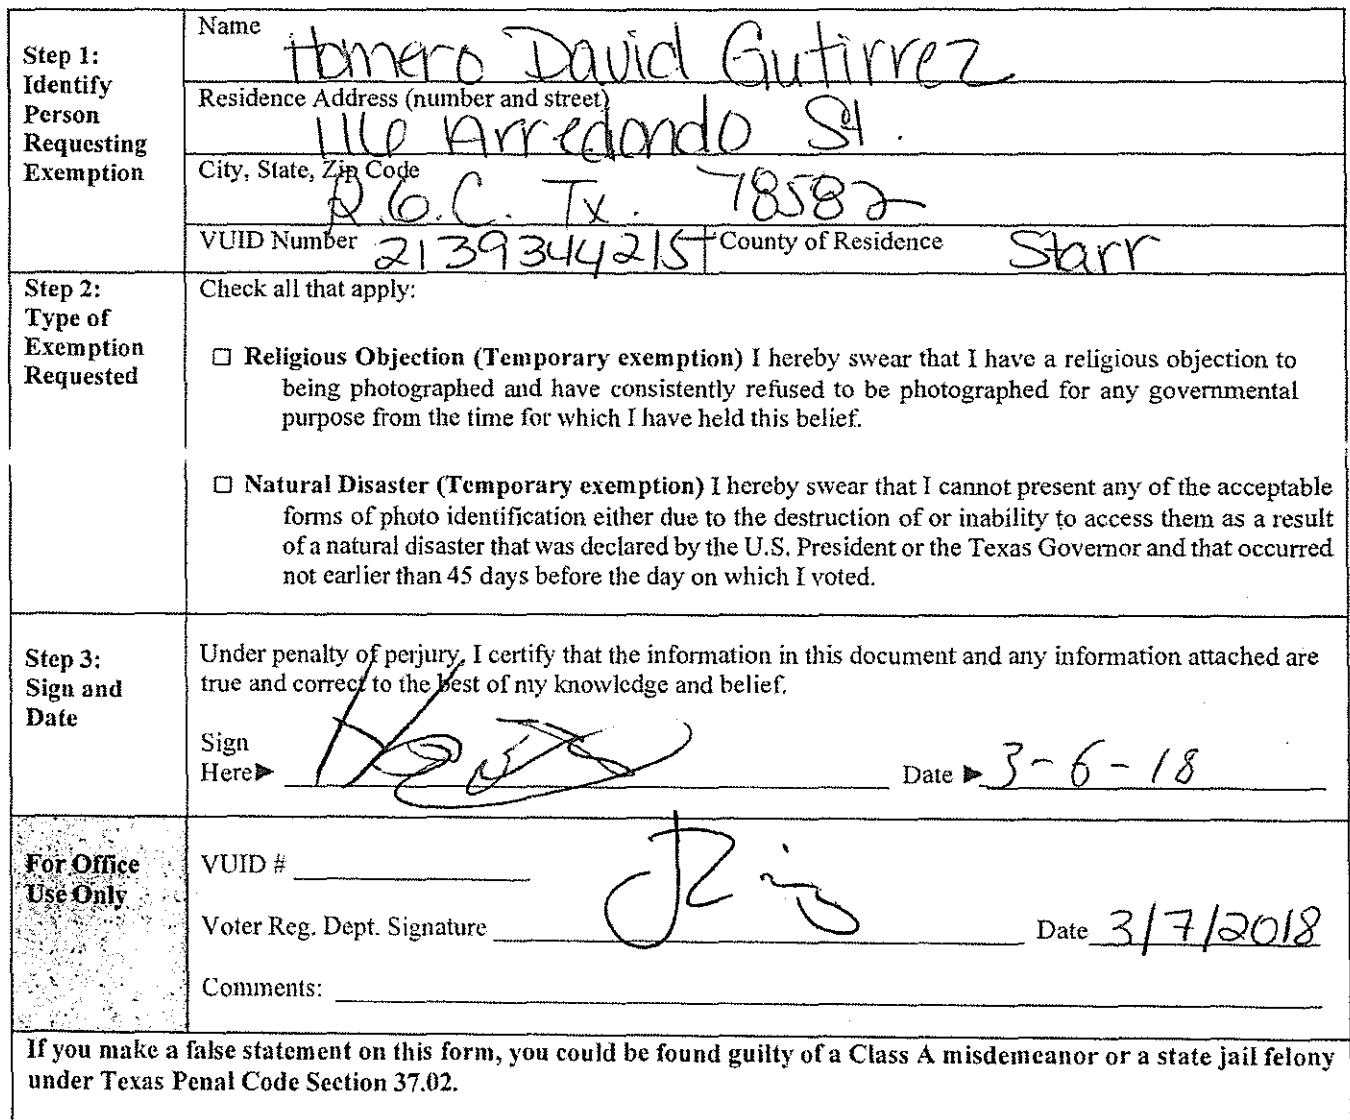 Step 1:
Identify
Person
Requesting
Exemption
Name Homero David Gutirrez
Residence Address (number and street)
116 Arredondo St.
City, State, Zip Code
R.G.C. Tx. 78582
VUID Number 2139344215 County of Residence Starr
Step 2:
Type of
Exemption
Requested
Check all that apply:
☐ Religious Objection (Temporary exemption) I hereby swear that I have a religious objection to
being photographed and have consistently refused to be photographed for any governmental
purpose from the time for which I have held this belief.
☐ Natural Disaster (Temporary exemption) I hereby swear that I cannot present any of the acceptable
forms of photo identification either due to the destruction of or inability to access them as a result
of a natural disaster that was declared by the U.S. President or the Texas Governor and that occurred
not earlier than 45 days before the day on which I voted.
Step 3:
Sign and
Date
Under penalty of perjury, I certify that the information in this document and any information attached are
true and correct to the best of my knowledge and belief.
Sign
Here► Date ► 3-6-18
For Office
Use Only
VUID #
Voter Reg. Dept. Signature Date 3/7/2018
Comments:
If you make a false statement on this form, you could be found guilty of a Class A misdemeanor or a state jail felony
under Texas Penal Code Section 37.02.